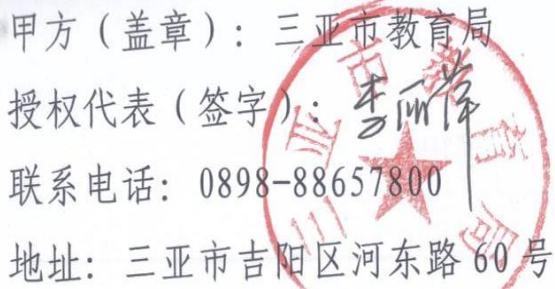 甲方（盖章）：三亚市教育局
授权代表（签字）：李丽萍
联系电话：0898-88657800
地址：三亚市吉阳区河东路60号
三亚市教育局